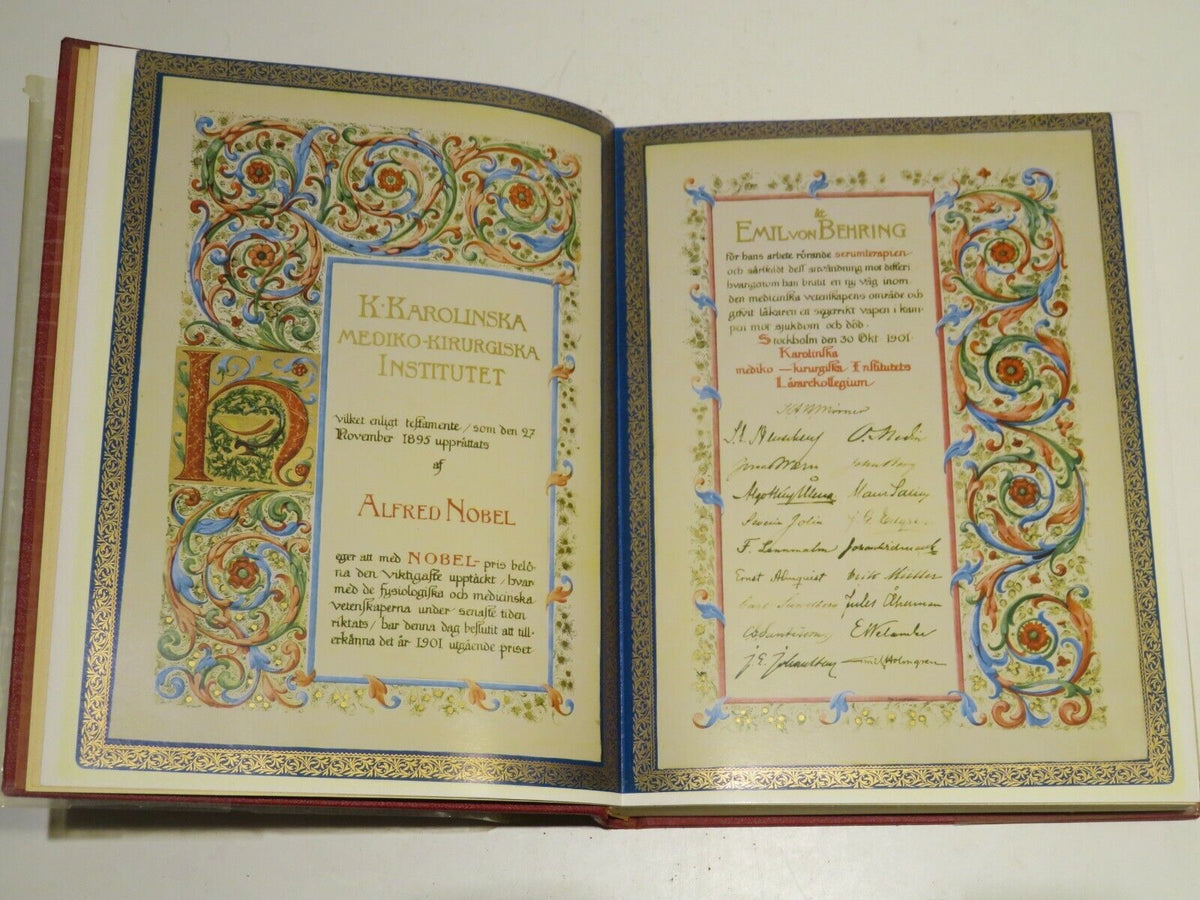 K. KAROLINSKA
MEDIKO-KIRURGISKA
INSTITUTET
H
vilket enligt testamente / som den 27
November 1895 upprättats
af
ALFRED NOBEL
eger att med NOBEL- pris belö-
na den viktigaste upptäckt / hvar-
med de fysiologiska och medicinska
vetenskaperna under senaste tiden
riktats / har denna dag beslutit att till-
erkänna det år 1901 utgående priset
åt
EMIL VON BEHRING
för hans arbete rörande serumterapien
och särskildt dess användning mot difteri
hvarigenom han brutit en ny väg inom
den medicinska vetenskapens område och
gifvit läkaren ett segerrikt vapen i kam-
pen mot sjukdom och död.
Stockholm den 30 Okt 1901.
Karolinska
mediko-kirurgiska Institutets
Lärarekollegium
Mörner
O. Medin
Jonas Wærn John Berg
Severin Jolin
F. Lennmalm
Ernst Almquist Erik Müller
Carl Sundberg Jules Åkerman
C G Santesson E Welander
J. E. Johansson Emil Holmgren